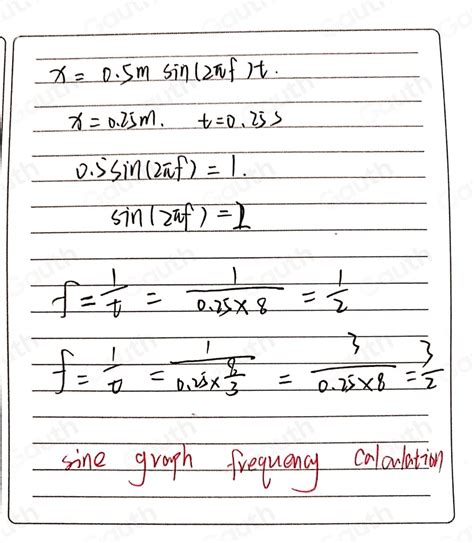 x = 0.5m sin(2πf)t.
x = 0.25m. t=0.25s
0.5sin(2πf) = 1.
sin(2πf) = 1
f = 1/t = 1/(0.25×8) = 1/2
f = 1/t = 1/(0.25×8/3) = 3/(0.25×8) = 3/2
sine graph frequency calculation